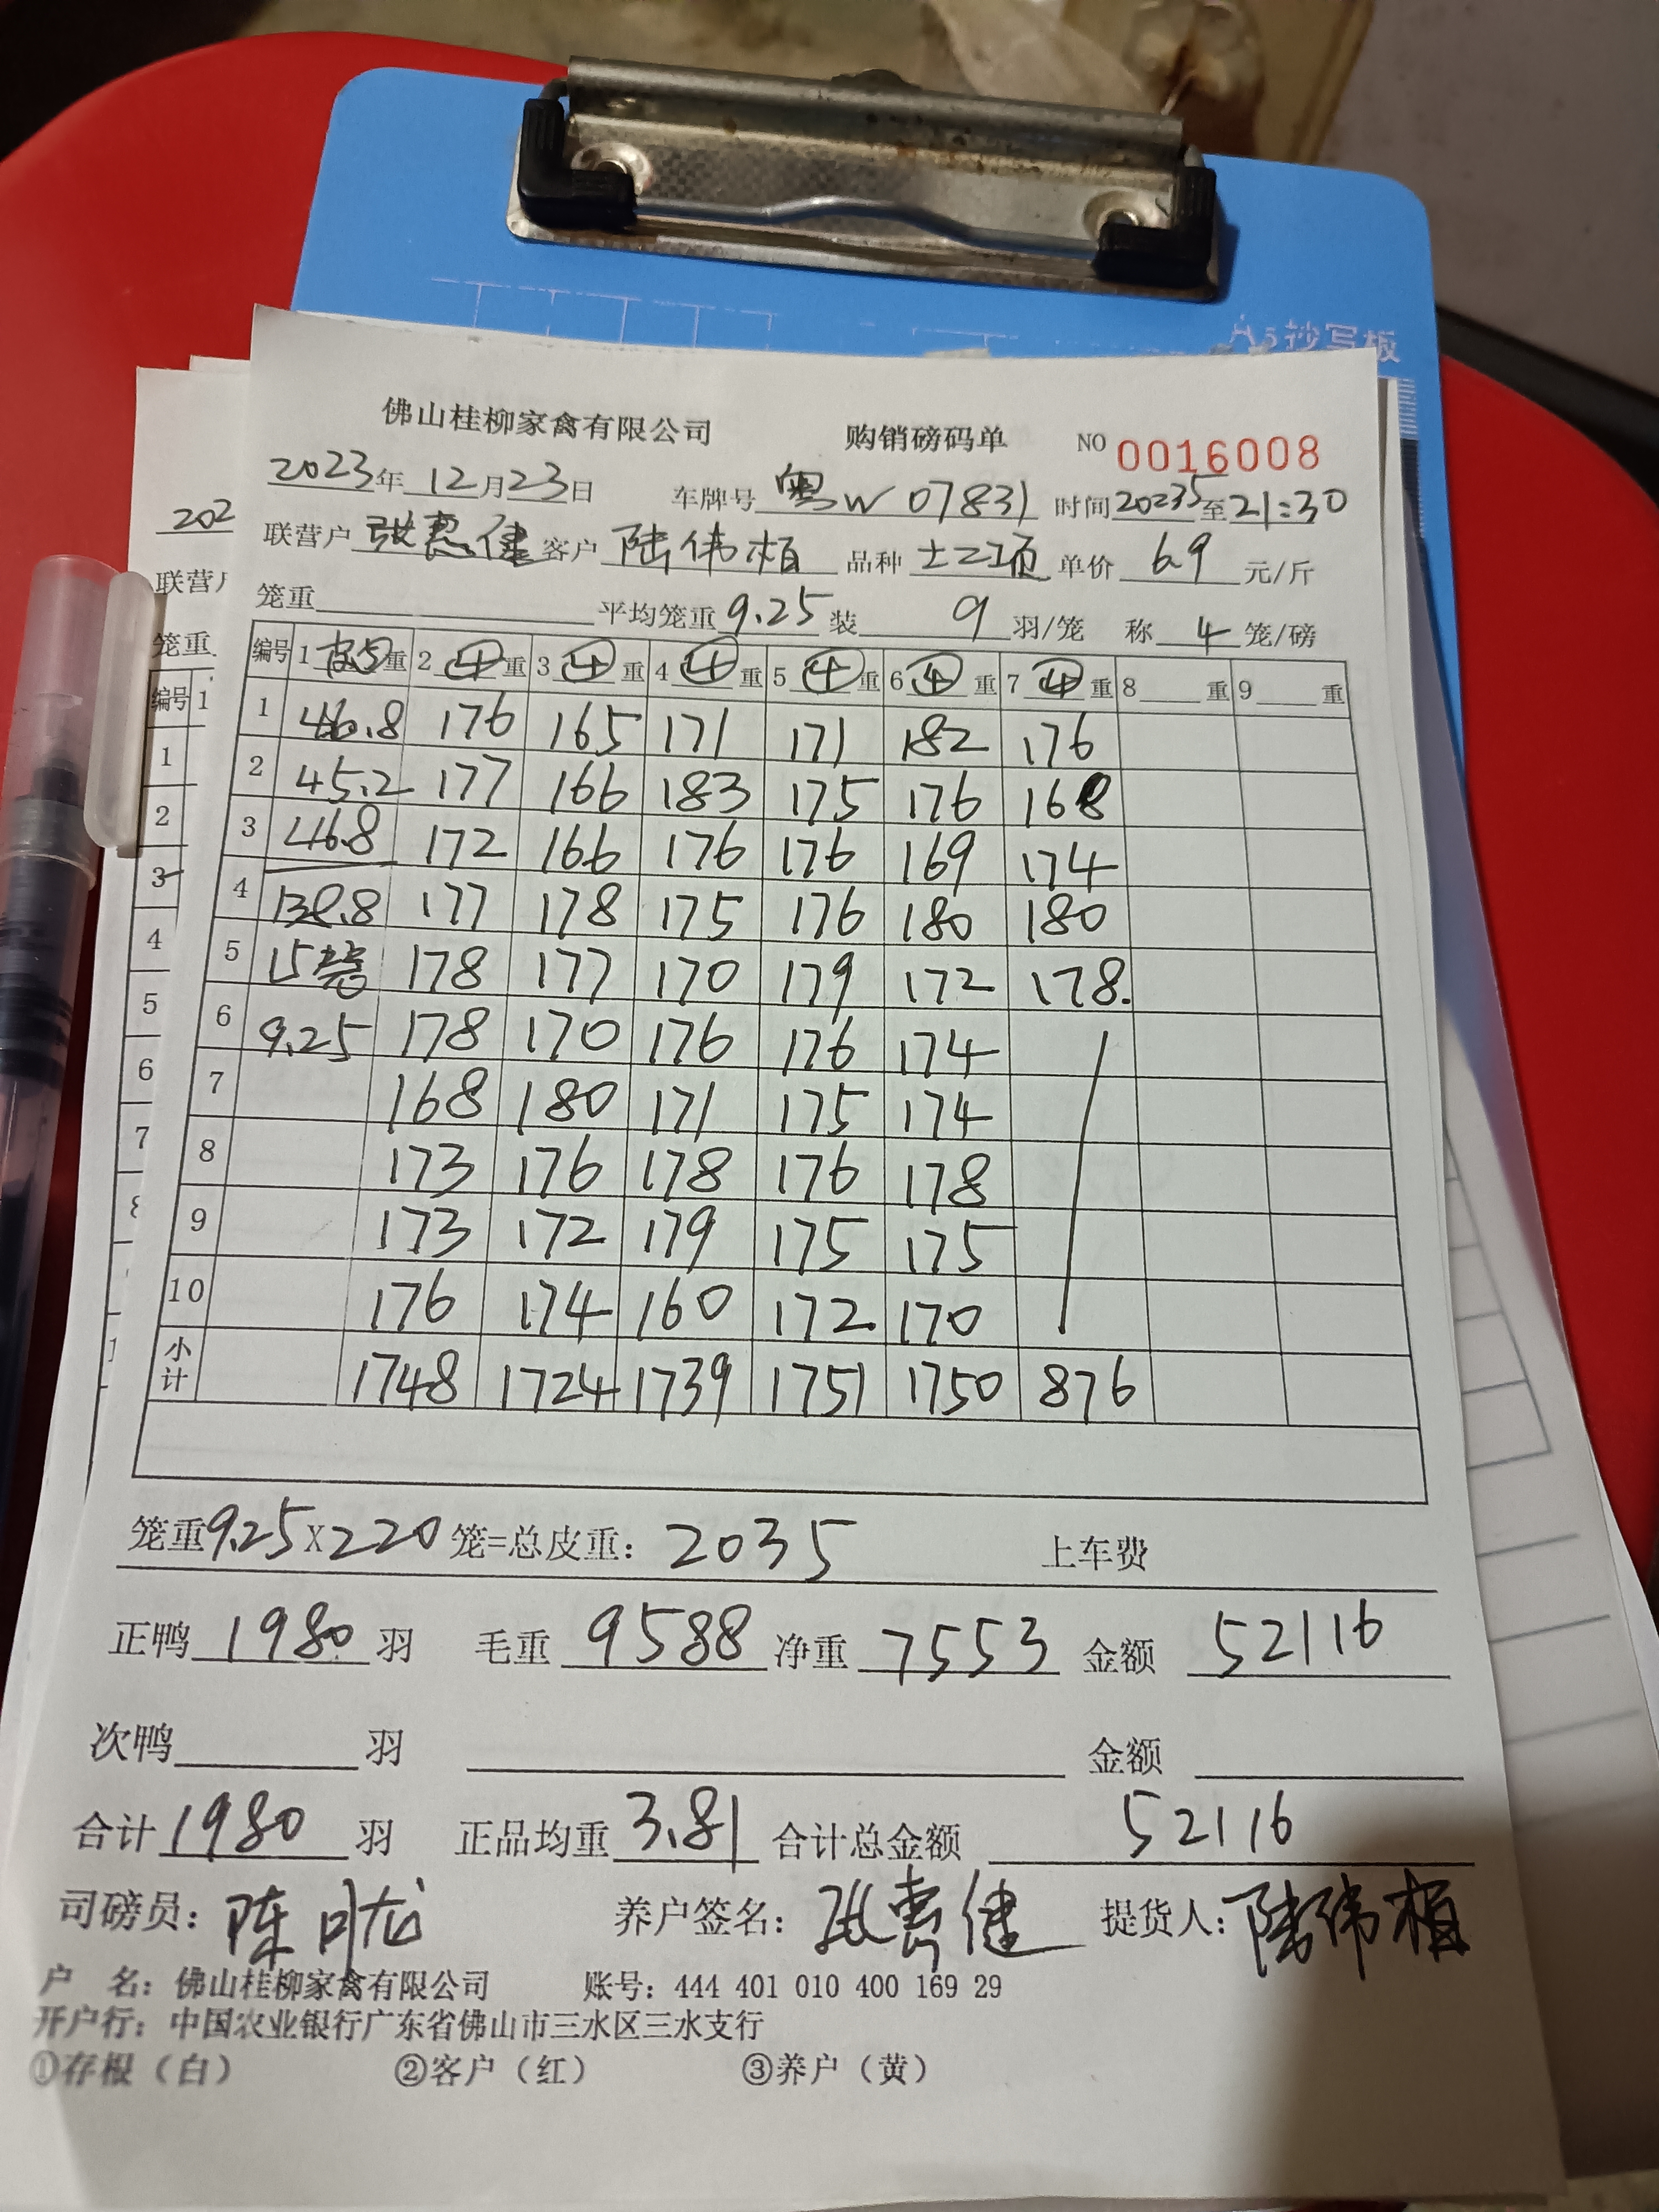 A5抄写板
佛山桂柳家禽有限公司 购销磅码单 NO 0016008
2023年12月23日 车牌号 粤W 07831 时间 2023 5 至 21:30
联营户 张惠健 客户 陆伟栢 品种 土二项 单价 6.9 元/斤
笼重 平均笼重 9.25 装 9 羽/笼 称 4 笼/磅
编号 1 皮5重 2 ④重 3 ④重 4 ④重 5 ④重 6 ④重 7 ④重 8 重 9 重
1 46.8 176 165 171 171 182 176
2 45.2 177 166 183 175 176 168
3 46.8 172 166 176 176 169 174
4 138.8 177 178 175 176 180 180
5 15 178 177 170 179 172 178.
6 9.25 178 170 176 176 174
7 168 180 171 175 174
8 173 176 178 176 178
9 173 172 179 175 175
10 176 174 160 172. 170
小计 1748 1724 1739 1751 1750 876
笼重9.25X220笼=总皮重: 2035 上车费
正鸭 1980 羽 毛重 9588 净重 7553 金额 52116
次鸭 羽 金额
合计 1980 羽 正品均重 3.81 合计总金额 52116
司磅员: 陈 养户签名: 张惠健 提货人: 陆伟栢
户 名: 佛山桂柳家禽有限公司 账号: 444 401 010 400 169 29
开户行: 中国农业银行广东省佛山市三水区三水支行
①存根（白） ②客户（红） ③养户（黄）
202
联营户
笼重
编号 1
1
2
3
4
5
6
7
8